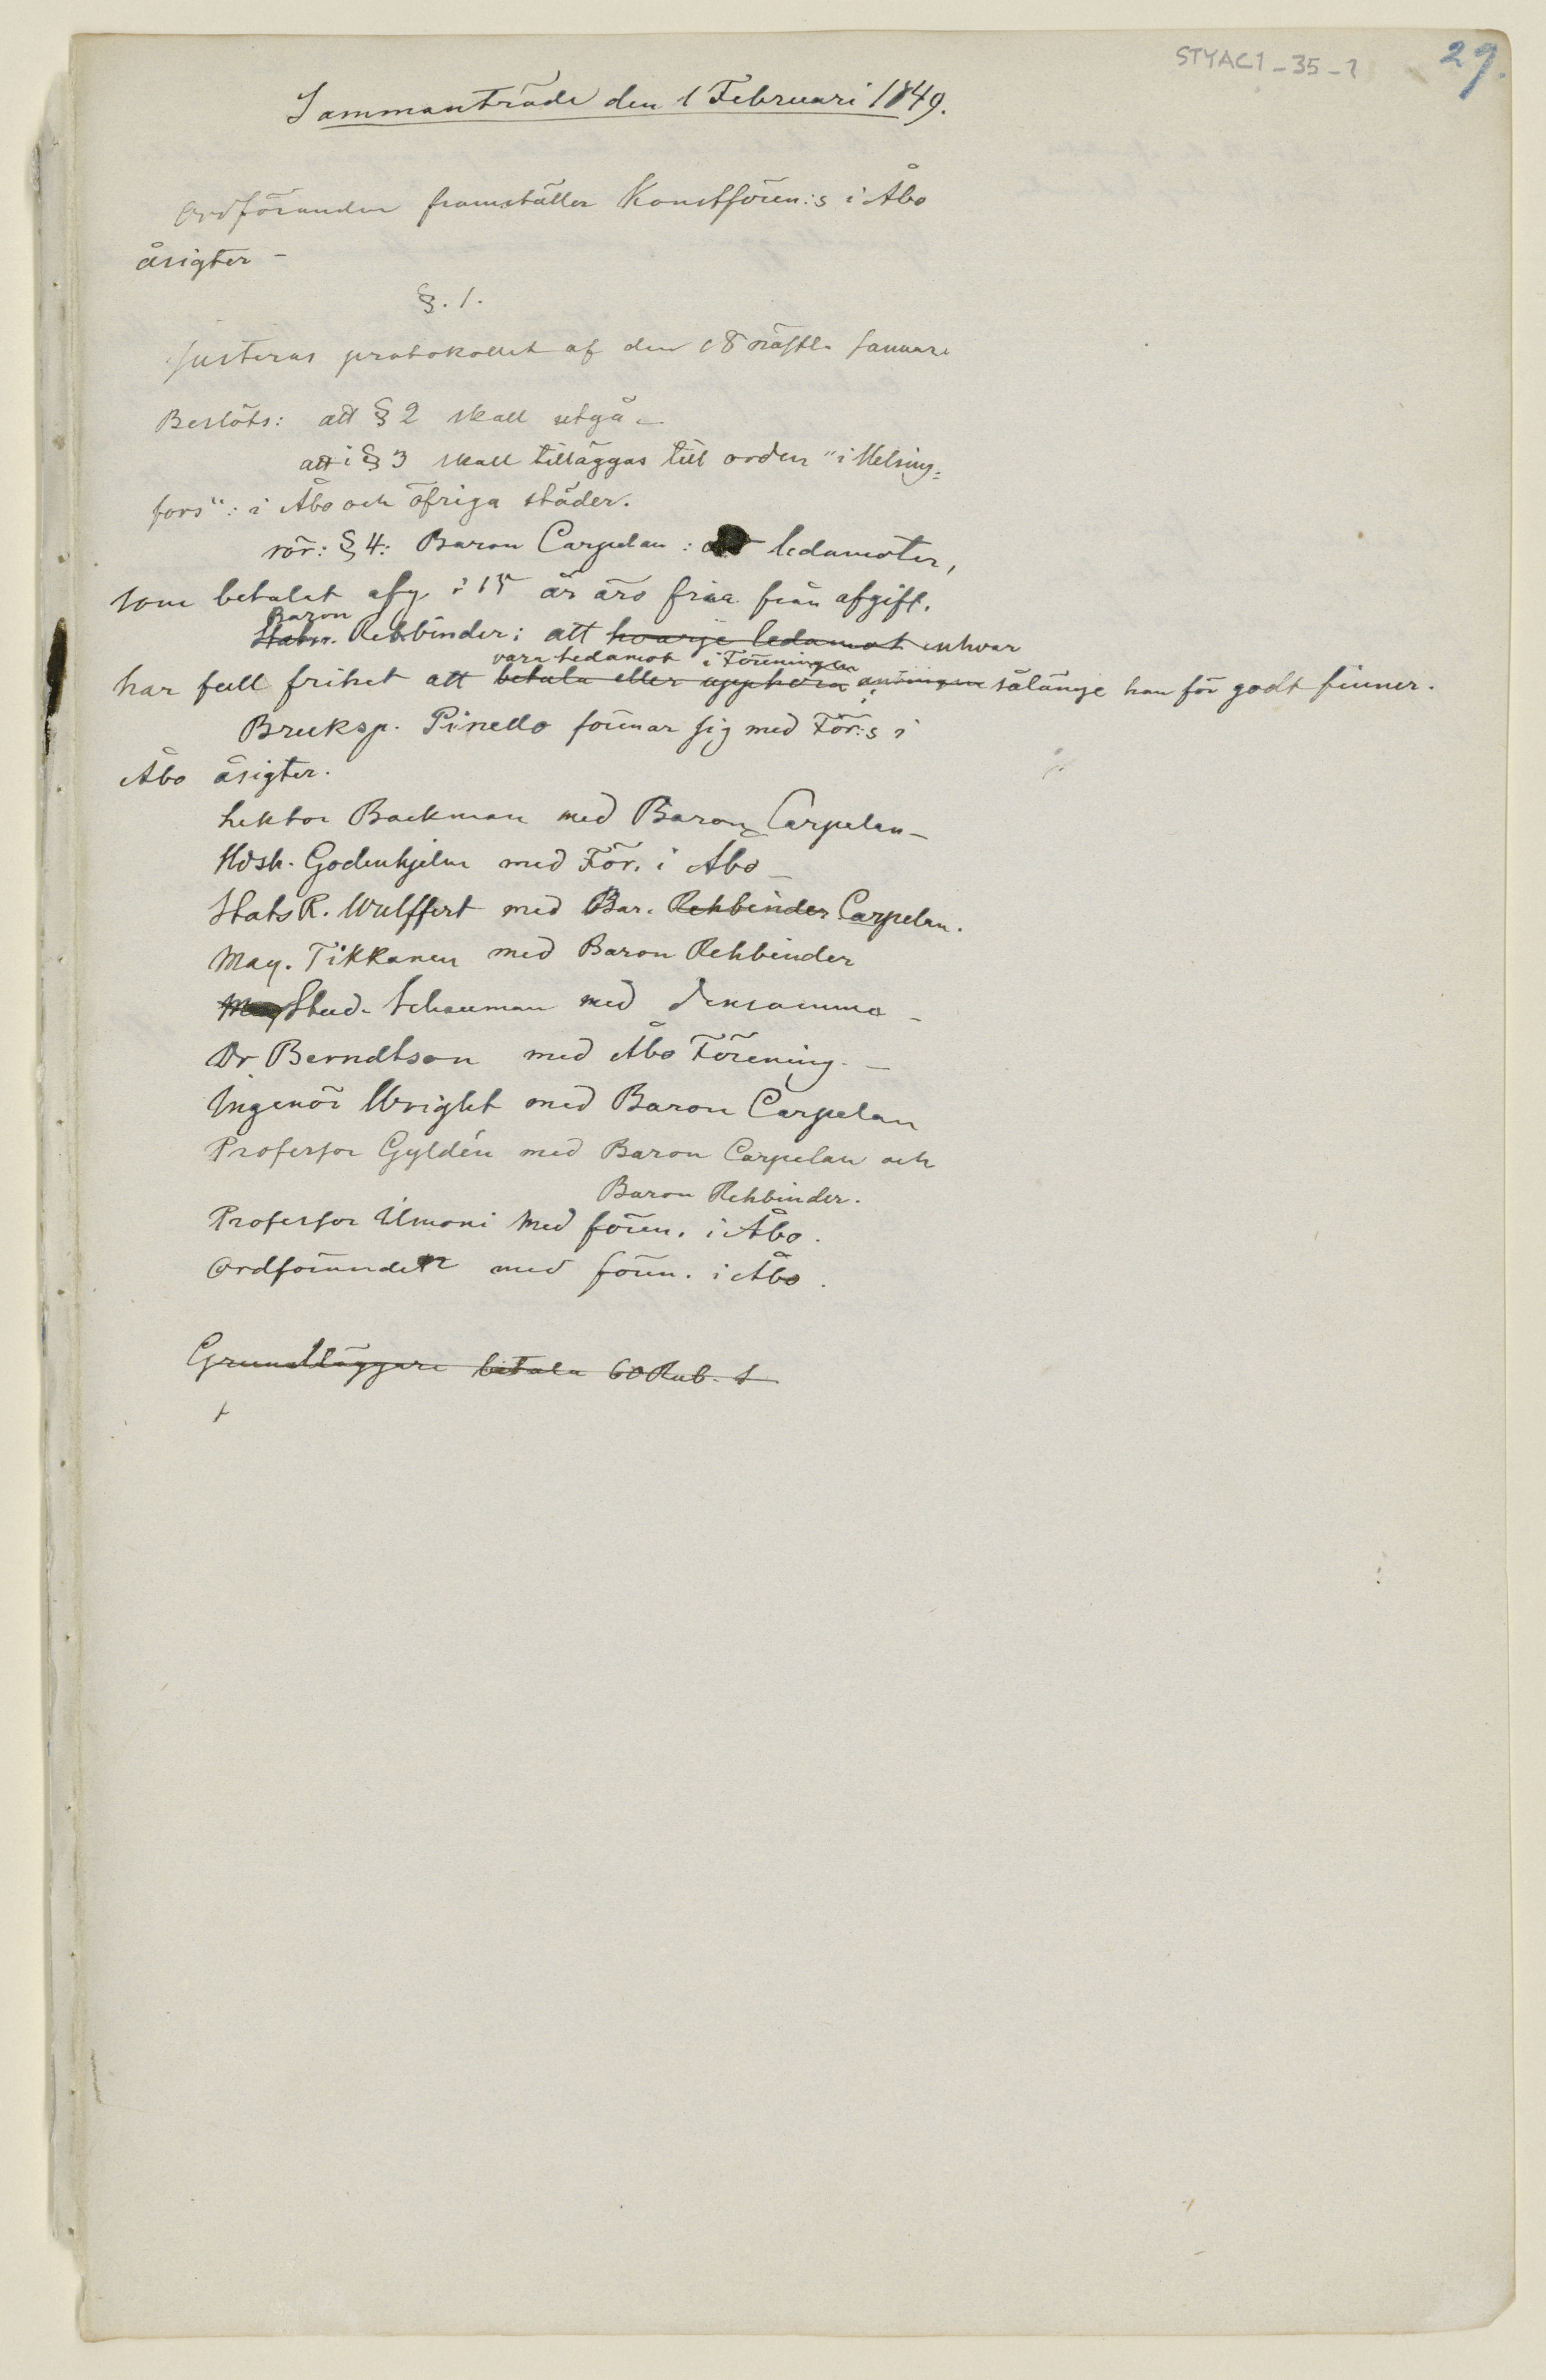 STYAC1-35-1
29.
Sammanträde den 1 Februari 1849.
Ordföranden framställer Konstfören:s i Åbo
åsigter –
§. 1.
Justeras protokollet af den 18 nästl. Januari
Beslöts: att § 2 skall utgå –
att i § 3 skall tilläggas till orden "i Helsing=
fors": i Åbo och öfriga städer.
rör: § 4: Baron Carpelan: att ledamöter,
som betalat afg. i 15 år äro fria från afgift.
Baron
Rehbinder: att hvarje ledamot enhvar
vara ledamot i Föreningen
har full frihet att betala eller upphöra sålänge han för godt finner.
Bruksp. Pinello förenar sig med För:s i
Åbo åsigter.
Lektor Backman med Baron Carpelan –
Hdsh. Godenhjelm med För. i Åbo –
StatsR. Wulffert med Bar. Rehbinder Carpelan.
Mag. Tikkanen med Baron Rehbinder
Mag Stud. Schauman med densamma –
Dr Berndtson med Åbo Förening. –
Ingenör Wright med Baron Carpelan
Professor Gyldén med Baron Carpelan och
Baron Rehbinder.
Professor Ilmoni med fören. i Åbo.
Ordföranden med fören. i Åbo.
Grundläggare betala 60 Rub. S